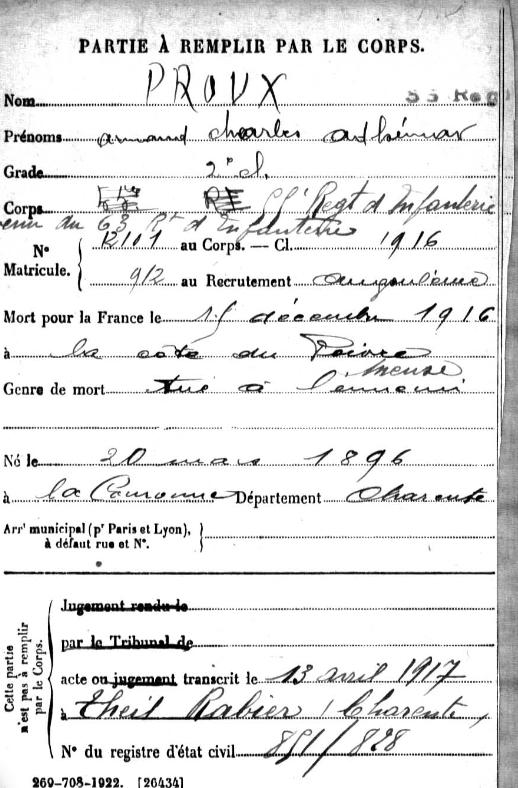 PARTIE À REMPLIR PAR LE CORPS.
Nom PROUX
Prénoms armand charles adhémar
Grade 2e cl.
Corps Régt d'Infanterie
venu du 63 Rt d'Infanterie
Nº
Matricule.
R101 au Corps. — Cl. 1916
912 au Recrutement angoulême
Mort pour la France le 15 décembre 1916
à la côte du Poivre
Meuse
Genre de mort tué à l'ennemi
Né le 20 mars 1896
à la Couronne Département Charente
Arrt municipal (pr Paris et Lyon),
à défaut rue et Nº.
Cette partie
n'est pas à remplir
par le Corps.
Jugement rendu le
par le Tribunal de
acte ou jugement transcrit le 13 avril 1917
à Theil Rabier (Charente)
Nº du registre d'état civil 851/828
269-708-1922. [26434]